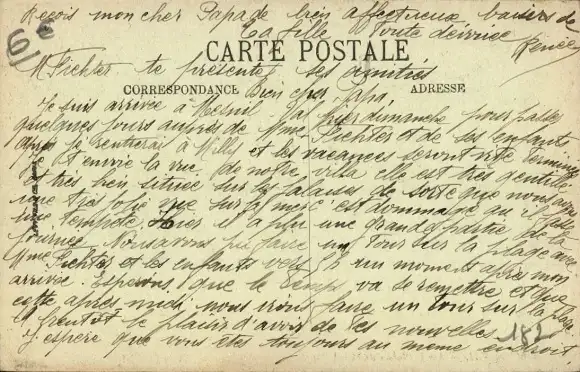 Reçois mon cher Papa de bien affectueux baisers de
ta fille toute dévouée
Renée
CARTE POSTALE
Mr Fichter te présente ses amitiés
CORRESPONDANCE
ADRESSE
Bien cher Papa,
Je suis arrivée à Mesnil hier dimanche pour passer
quelques jours auprès de Mme Fichter et de ses enfants.
après je rentrerai à Mills et les vacances seront vite terminées
Je t'ai envoyé la vue de notre villa elle est très gentille
et très bien située sur les falaises de sorte que nous avons
une très jolie vue sur la mer c'est dommage qu'il fasse
une tempête. Hier il a plu une grande partie de la
journée. Nous avons pu faire un tour sur la plage avec
Mme Fichter et les enfants vers un moment après mon
arrivée. Espérons que le temps va se remettre et que
cette après midi nous irons faire un tour sur la plage
A bientôt le plaisir d'avoir de tes nouvelles
182
J'espère que vous êtes toujours au même endroit.